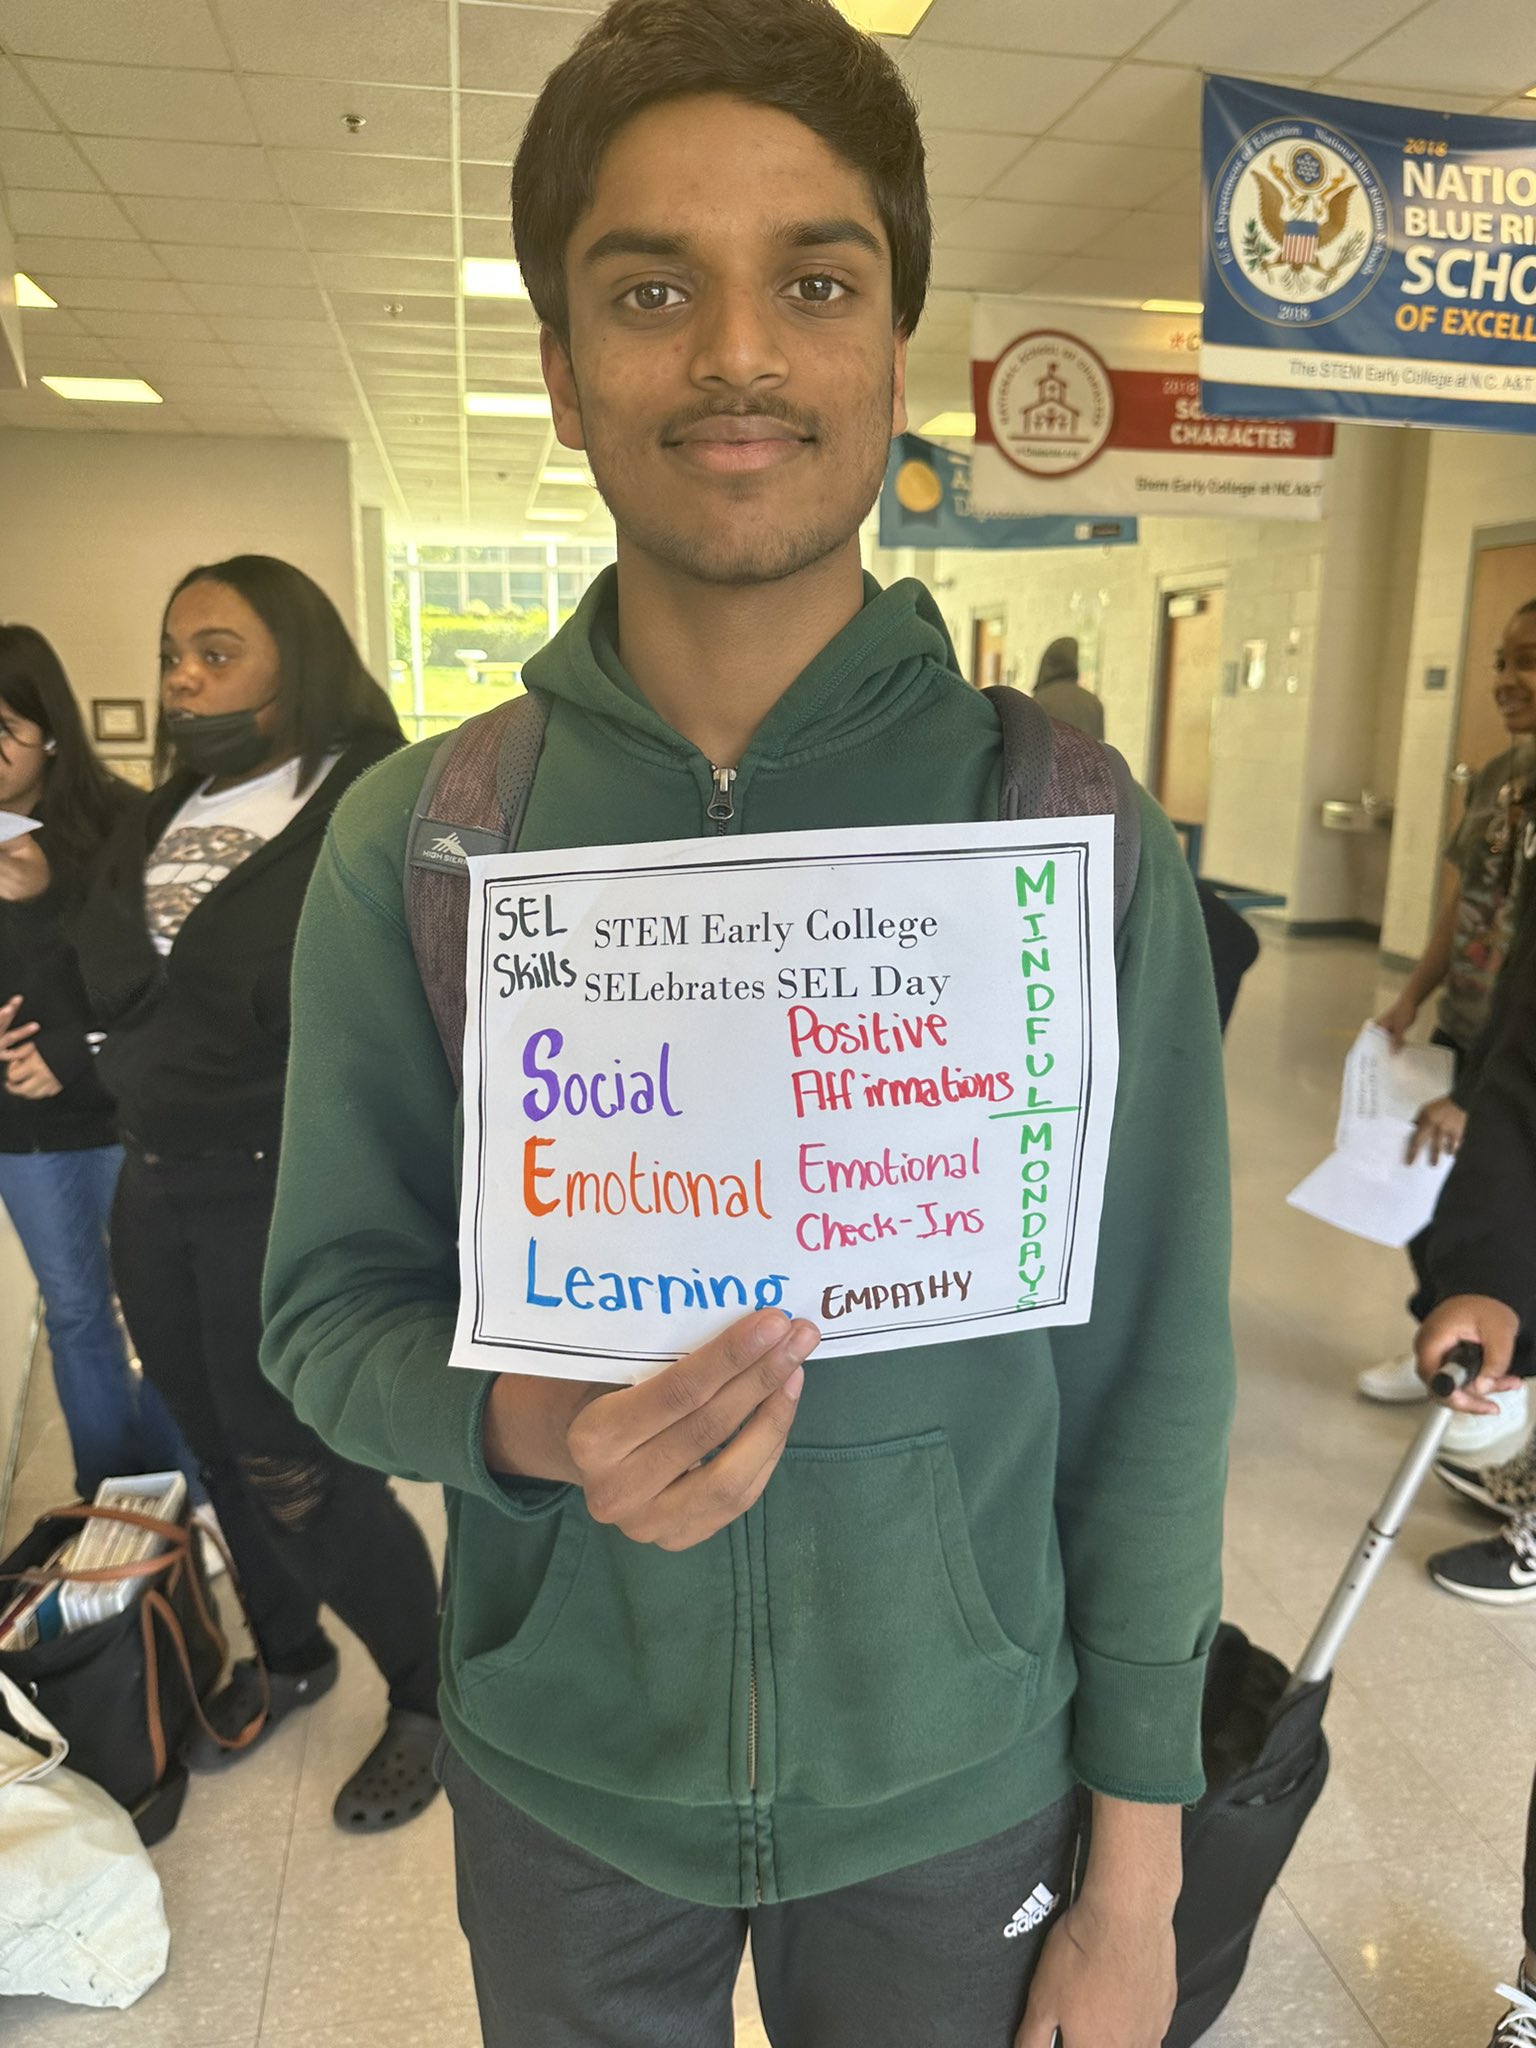 SEL
Skills
STEM Early College
SELebrates SEL Day
Social
Emotional
Learning
Positive
Affirmations
Emotional
Check-Ins
EMPATHY
MINDFUL
MONDAYS
HIGH SIERRA
adidas
U.S. Department of Education National Blue Ribbon Schools
2018
2018
NATIO
BLUE RI
SCHO
OF EXCELL
The STEM Early College at N.C. A&T
NATIONAL SCHOOL OF CHARACTER
2018
SCHOOL OF
CHARACTER
Stem Early College at NC A&T